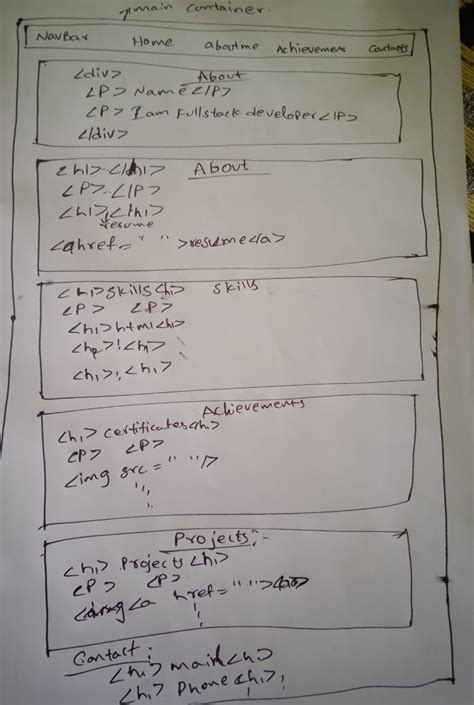 main container.
NavBar Home aboutme Achievement Contacts
About
<div>
<P> Name </P>
<P> I am Fullstack developer </P>
</div>
About
<h1> </h1>
<P> </P>
<h1> </h1>
resume
<a href=" " >resume</a>
skills
<h1>skills<h1>
<P> <P>
<h1>html<h1>
<h1> <h1>
Achievements
<h1> certificates<h1>
<P> <P>
<img src=" "/>
Projects:-
<h1> Projects <h1>
<P> <P>
<a href=" ">
Contact:
<h1> mail <h1>
<h1> Phone <h1>